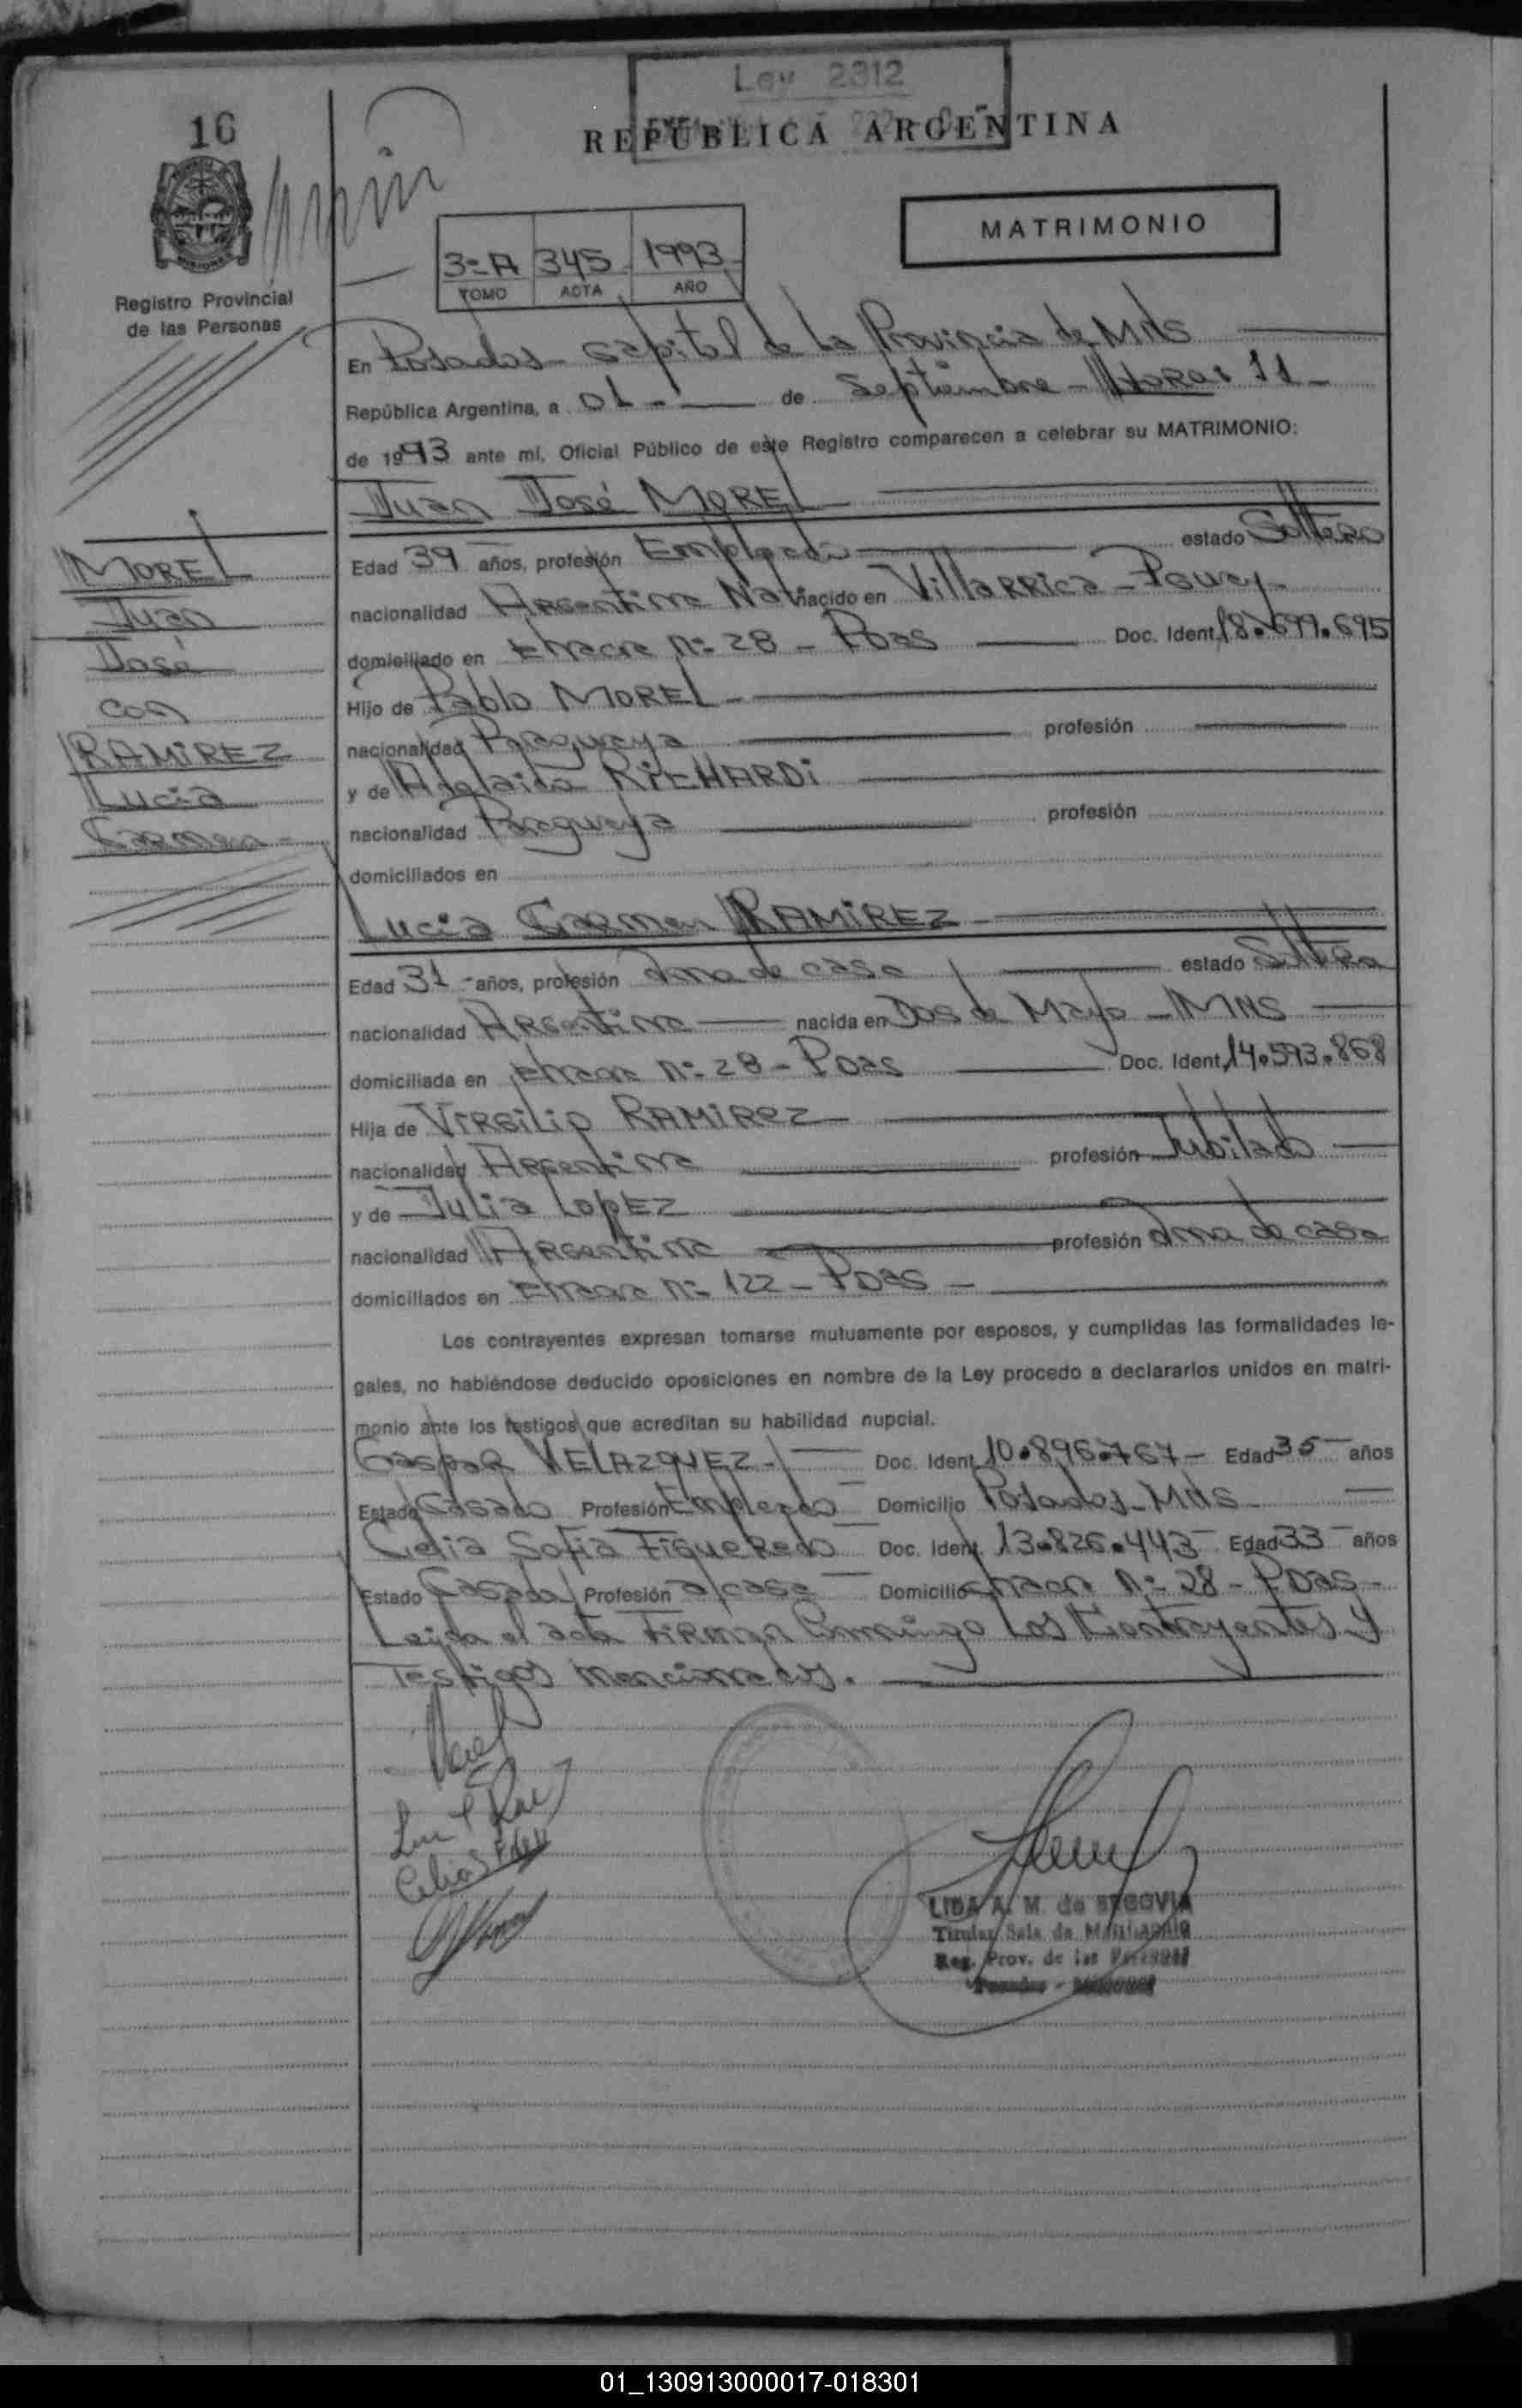 Ley 2312
16
REPUBLICA ARGENTINA
MATRIMONIO
3=A 345 1993
TOMO ACTA AÑO
Registro Provincial
de las Personas
En Posadas Capital de La Provincia de MNS
República Argentina, a 01 - de Septiembre - Horas 11 -
de 1993 ante mí, Oficial Público de este Registro comparecen a celebrar su MATRIMONIO:
Juan José MOREL
Edad 39 años, profesión Empleado estado Soltero
nacionalidad Argentina Nat nacido en Villarrica - Pguay -
domiciliado en Chacra Nº 28 - Pdas Doc. Ident. 18.699.695
Hijo de Pablo MOREL -
nacionalidad Paraguaya profesión
y de Adelaida RICHARDI
nacionalidad Paraguaya profesión
domiciliados en
MOREL
Juan
José
con
RAMIREZ
Lucia
Carmen -
Lucia Carmen RAMIREZ -
Edad 31 - años, profesión Ama de casa estado Soltera
nacionalidad Argentina nacida en Dos de Mayo - MNS
domiciliada en Chacra Nº 28 - Pdas Doc. Ident. 14.593.868
Hija de Virgilio RAMIREZ
nacionalidad Argentina profesión Jubilado
y de Julia LopEZ
nacionalidad Argentina profesión Ama de casa
domiciliados en Chacra Nº 122 - Pdas -
Los contrayentes expresan tomarse mutuamente por esposos, y cumplidas las formalidades le-
gales, no habiéndose deducido oposiciones en nombre de la Ley procedo a declararlos unidos en matri-
monio ante los testigos que acreditan su habilidad nupcial.
Gaspar VELAZQUEZ - Doc. Ident. 10.896.767 - Edad 35 años
Estado Casado Profesión Empleado Domicilio Posadas - MNS
Celia Sofia Figueredo Doc. Ident. 13.826.443 Edad 33 años
Estado Casada Profesión a/casa Domicilio Chacra Nº 28 - Pdas -
Leída el acta Firman Conmigo Los Contrayentes y
Testigos mencionados.
LIDA A. M. de SEGOVIA
Titular Sala de Matrimonio
Reg. Prov. de las Personas
Posadas - Misiones
01_130913000017-018301